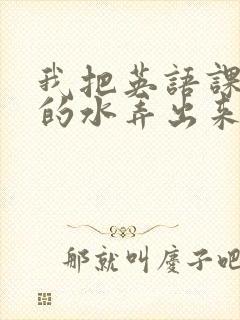 我把英語課
的水弄出來
那就叫慶子吧